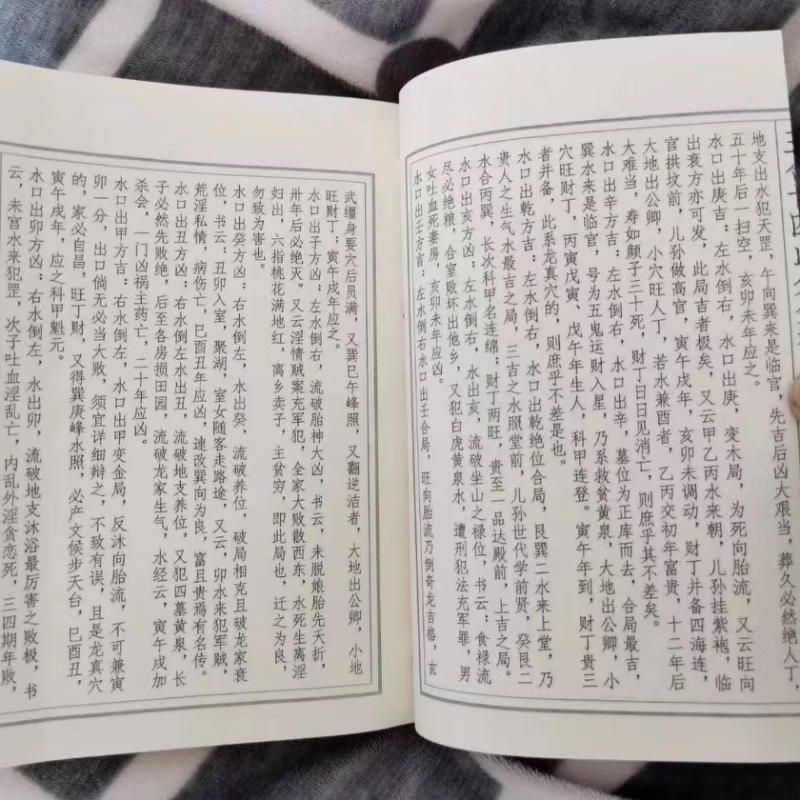 地支出水犯天罡,午向巽来是临官,先吉后凶大艰当,葬久必然绝人丁,
五十年后一扫空,亥卯未年应之。
水口出庚吉:左水倒右,水口出庚,变木局,为死向胎流,又云旺向
出衰方亦可发,此局吉者极矣,又云甲乙丙水来朝,儿孙挂紫袍,临
官拱坟前,儿孙做高官,寅午戌年,亥卯未调动,财丁并备四海连,
大地出公卿,小穴旺人丁,若水兼酉者,乙丙交初年富贵,十二年后
大难当,寿如颜子三十死,财丁日日见消亡,则庶乎其不差矣。
水口出辛方吉:左水倒右,水口出辛,墓位为正库而去,合局最吉,
巽水来是临官,号为五鬼运财入星,乃系救贫黄泉,大地出公卿,小
穴旺财丁,丙寅戊寅、戊午年生人,科甲连登。寅午年到,财丁贵三
者并备,此系龙真穴的,则庶乎不差是也。
水口出乾方吉:左水倒右,水口出乾绝位合局,艮巽二水来上堂,乃
贵人之生气水最吉之局,三吉之水照堂前,儿孙世代学前贤,癸艮二
水合丙巽,长次科甲名连绵;财丁两旺,贵至一品达殿前,上吉之局。
水口出亥方凶:左水倒右,水出亥,流破坐山之禄位,书云:食禄流
尽必绝粮,合室败坏出他乡,又犯白虎黄泉水,遭刑犯法充军罪,男
女吐血死妻房,亥卯未年应凶。
水口出壬方言:左水倒右水口出壬合局,旺向胎流乃倒奇龙吉格,玄
武缠身要穴后员满,又巽巳午峰照,又翻逆洁者,大地出公卿,小地
旺财丁;寅午戌年应之。
水口出子方凶:左水倒右,流破胎神大凶,书云,未脱娘胎先夭折,
卅年后必绝灭。又云淫情贼案充军犯,全家大败散西东,水死生离淫
妇出,六指桃花满地红,离乡卖子,主贫穷,即此局也,迁之为良,
勿致为害也。
水口出癸方凶:右水倒左,水出癸,流破养位,破局相克且破龙家衰
位,书云:丑卯入室,聚湖,室女随客走路途,又云,卯水来犯军贼,
荒淫私情,病伤亡,巳酉丑年应凶,速改巽向为良,富且贵焉有名传。
水口出丑方凶:右水倒左水出丑,流破地支养位,又犯四墓黄泉,长
子必然先败绝,后至各房损田园,流破龙家生气,水经云,寅午戌加
杀会,一门凶祸主药亡,二十年应凶。
水口出甲方吉:右水倒左,水口出甲变金局,反沐向胎流,不可兼寅
卯一分,出口倘无必当大败,须宜详细辩之,不致有误,且是龙真穴
的,家必自昌,旺丁财,又得巽庚峰水照,必产文候步天台,巳酉丑,
寅午戌年,应之科甲魁元。
水口出卯方凶:右水倒左,水出卯,流破地支沐浴最厉害之败极,书
云,未宫水来犯罡,次子吐血淫乱亡,内乱外淫贪恋死,三四期年败,